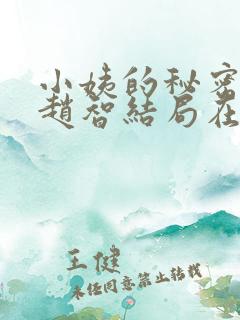 小姨的秘密
趙智結局在
王健
未经同意禁止转载